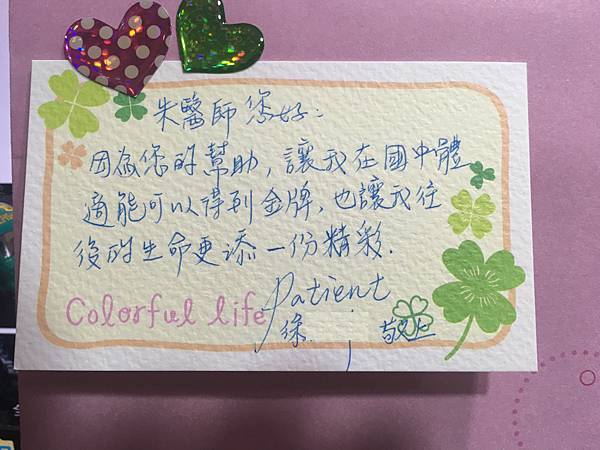 朱醫師您好：
因為您的幫助，讓我在國中體
適能可以得到金牌，也讓我往
後的生命更添一份精彩.
Patient
Colorful life
徐 敬上